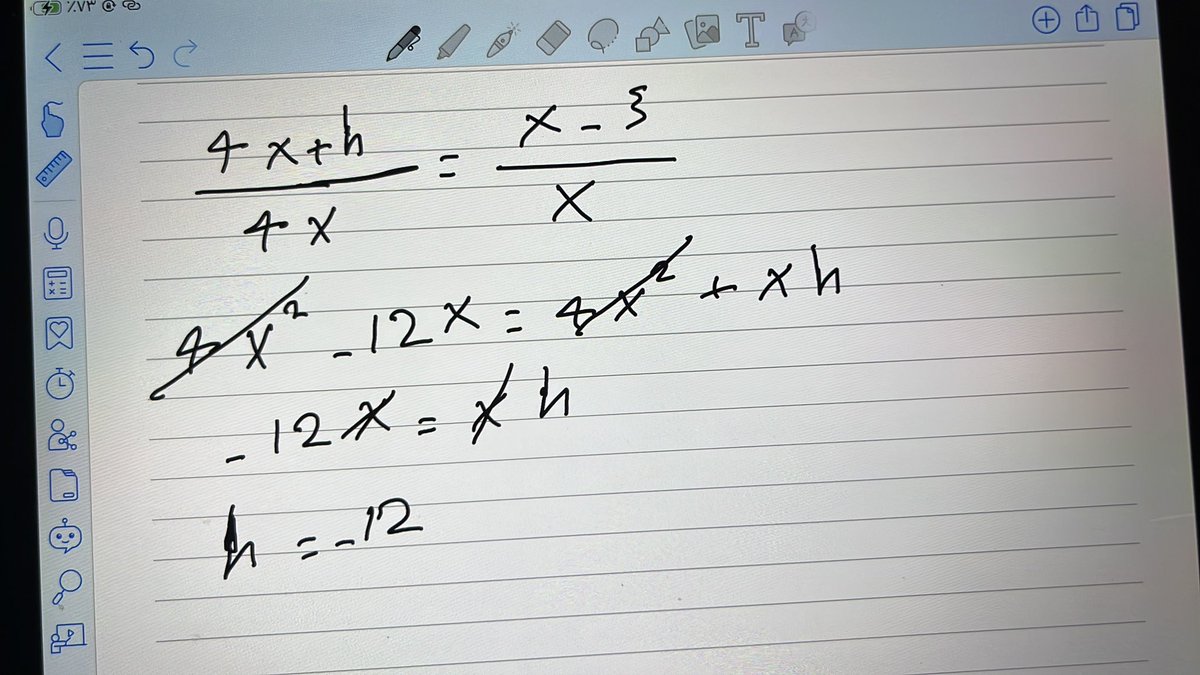 ٪۷۳
T
4x+h/4x = x-3/x
4x² - 12x = 4x² + xh
-12x = xh
h = -12